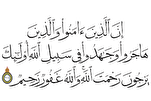 إِنَّ الَّذِينَ ءَامَنُوا۟ وَالَّذِينَ
هَاجَرُوا۟ وَجَٰهَدُوا۟ فِى سَبِيلِ اللَّهِ أُو۟لَٰٓئِكَ
يَرْجُونَ رَحْمَتَ اللَّهِ وَاللَّهُ غَفُورٌ رَّحِيمٌ